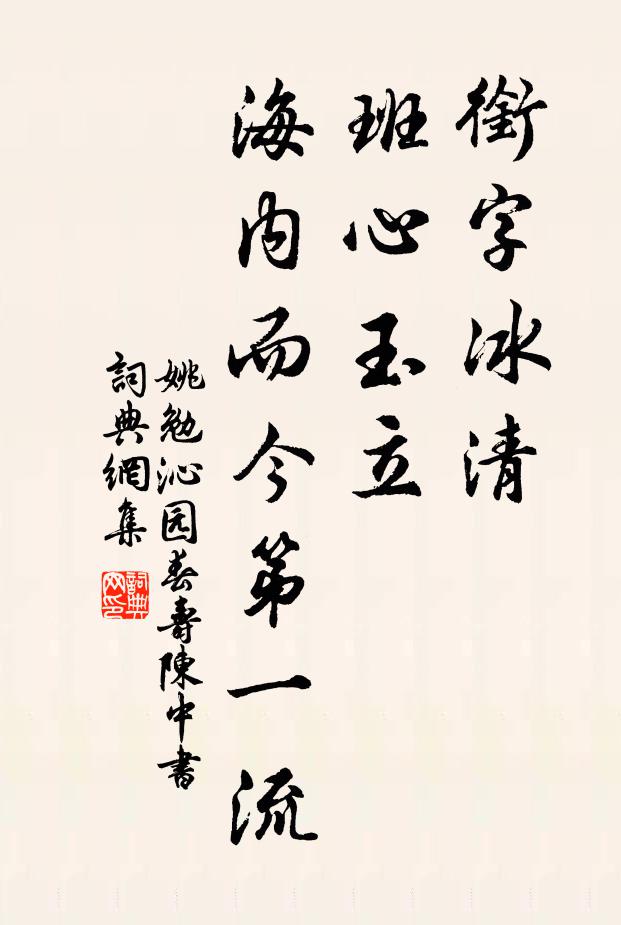 銜字冰清
班心玉立
海内而今第一流
姚勉沁园春壽陳中書
詞典網集
詞典网印